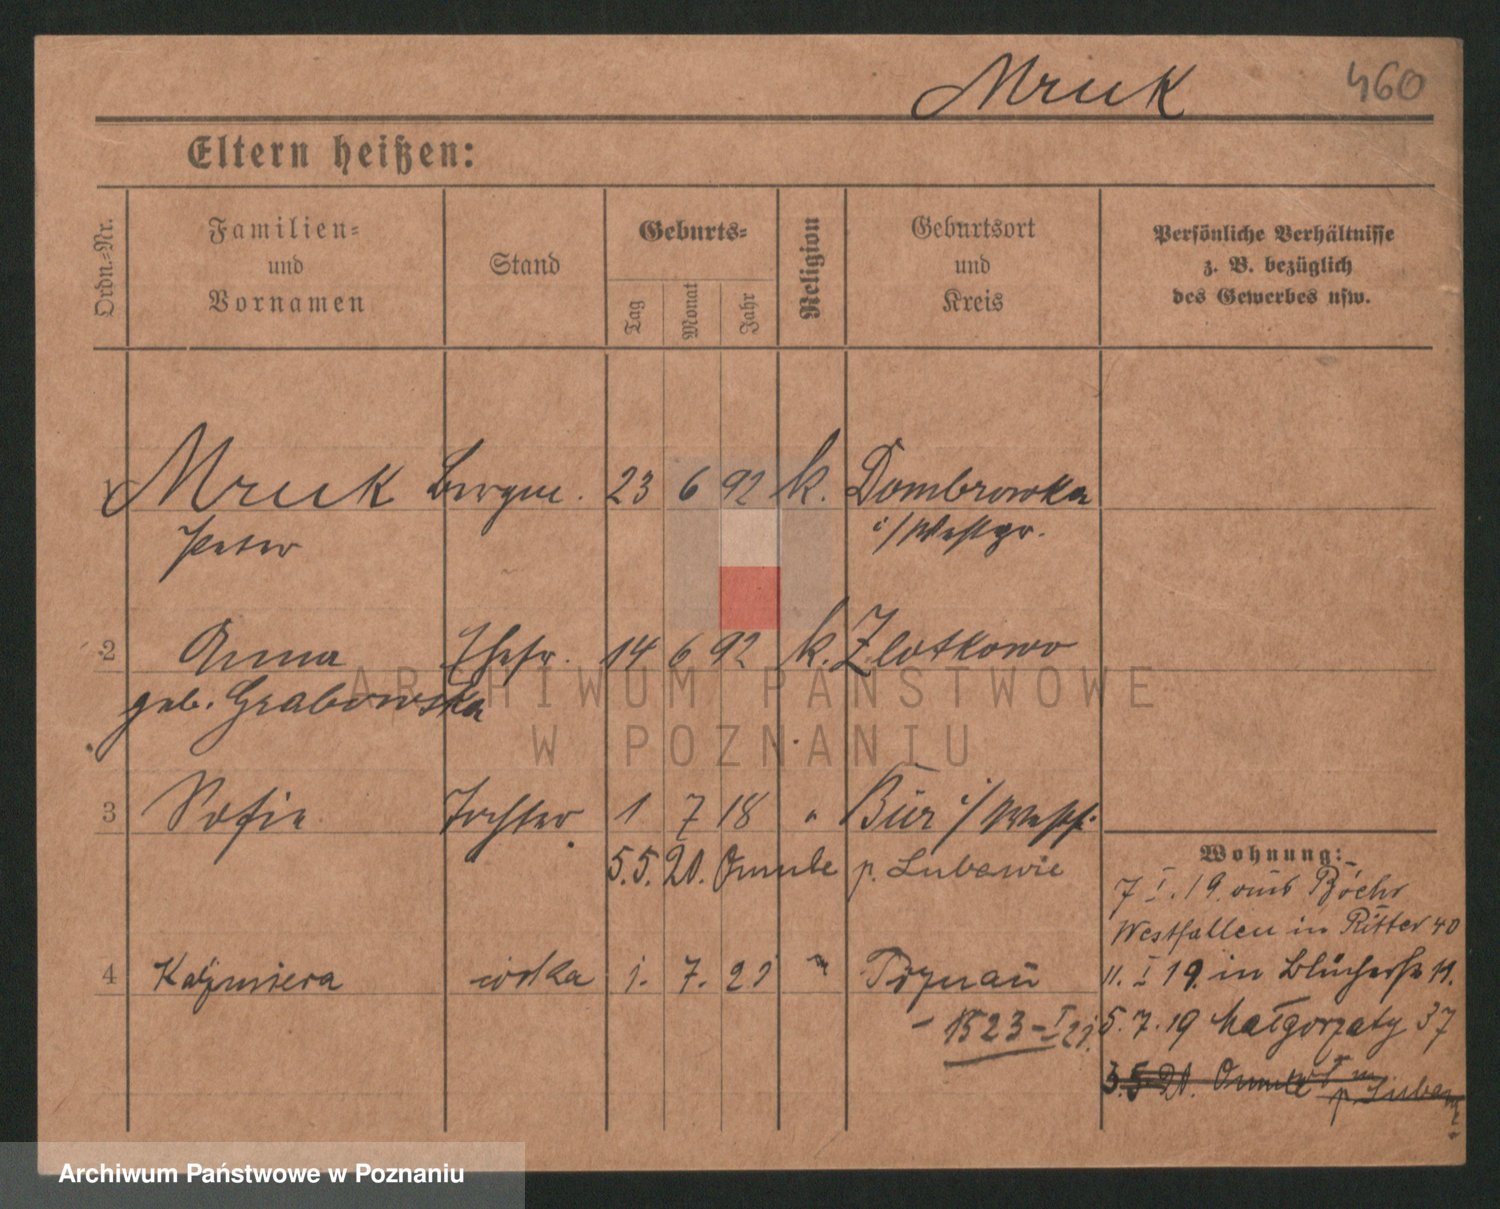 Mruk 460
Eltern heißen:
Ordn.-Nr.
Familien-
und
Vornamen
Stand
Geburts-
Tag
Monat
Jahr
Religion
Geburtsort
und
Kreis
Persönliche Verhältnisse
z. B. bezüglich
des Gewerbes usw.
1 Mruk Bergm. 23 6 92 k. Dombrowka
Peter i/Westpr.
2 Anna Ehefr. 14 6 92 k. Zlotkowo
geb. Grabowska
3 Sofie Tochter 1 7 18 " Bür i/Westf.
5.5.20. Omule p. Lubawie
4 Kaźmiera córka 1. 7. 21 " Poznań
- 1523-I 21.
Wohnung:
7 I. 19 aus
Westfallen in Ritter 40
11. I 19. in Blücherstr 11.
5. 7. 19 Małgorzaty 37
3.5.20. Omule
p. Lubawę
ARCHIWUM PAŃSTWOWE
W POZNANIU
Archiwum Państwowe w Poznaniu